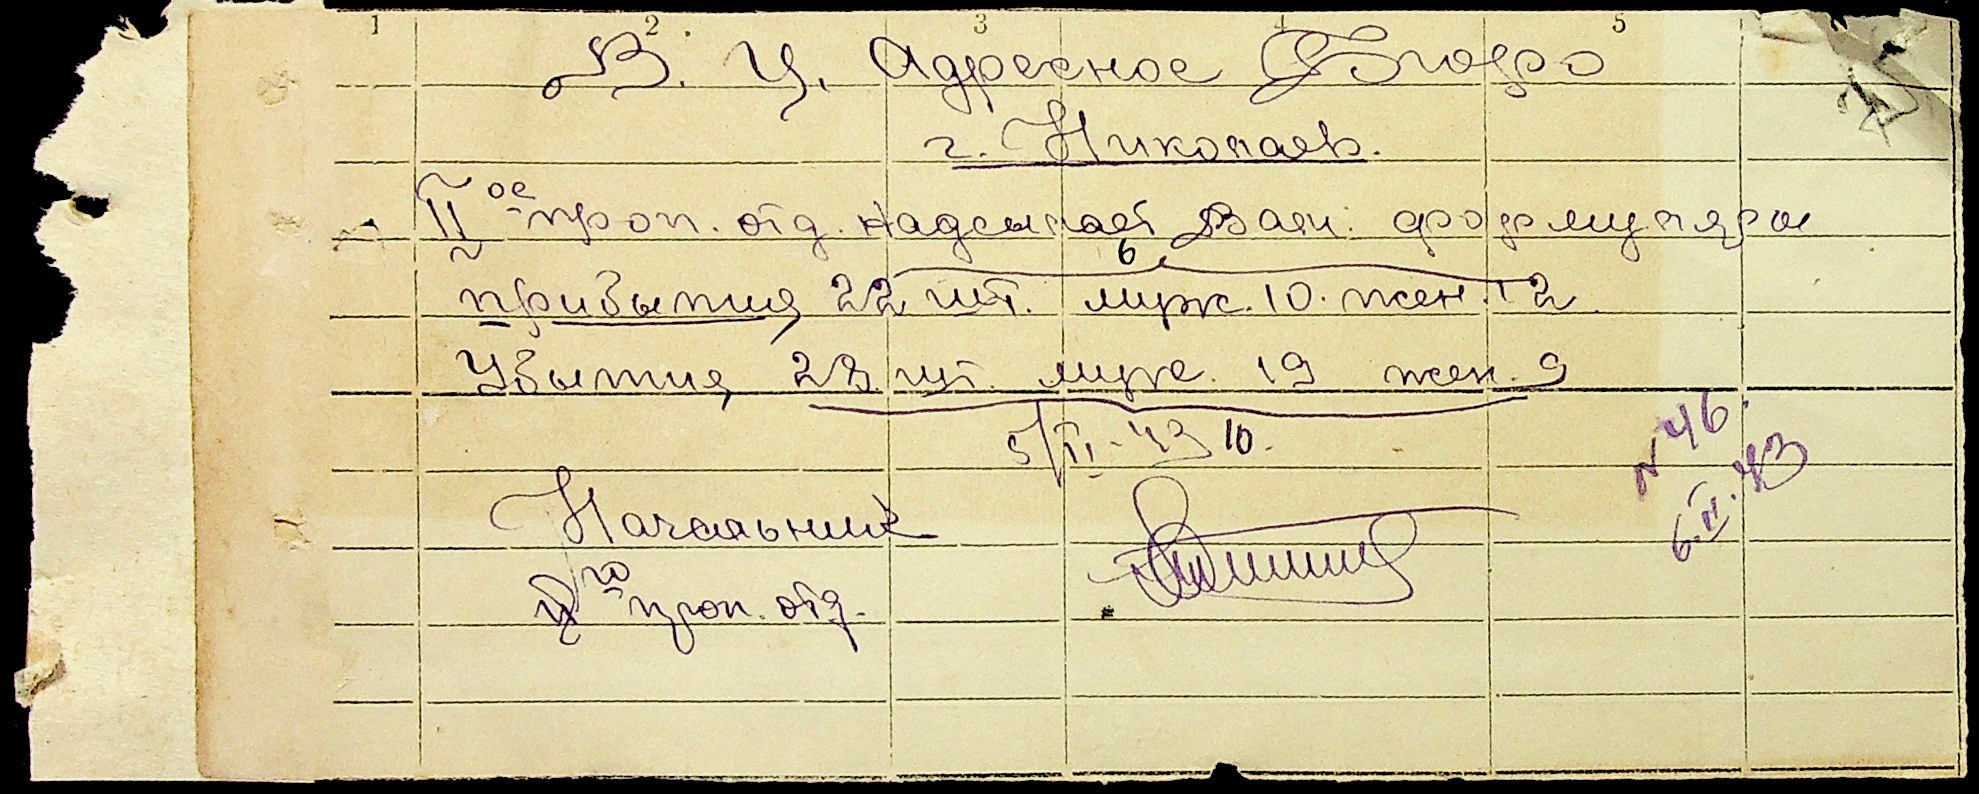 1 2 3 4 5
В. Ц. Адресное Бюро
г. Николаев.
II ое проп. отд. надсылает Вам. формуляры
6
прибытия 22 шт. муж. 10. жен. 12
Убытия 28 шт. муж. 19 жен. 9
5/II-43 10.
№ 46.
6.II.43
Начальник
II го проп. отд.